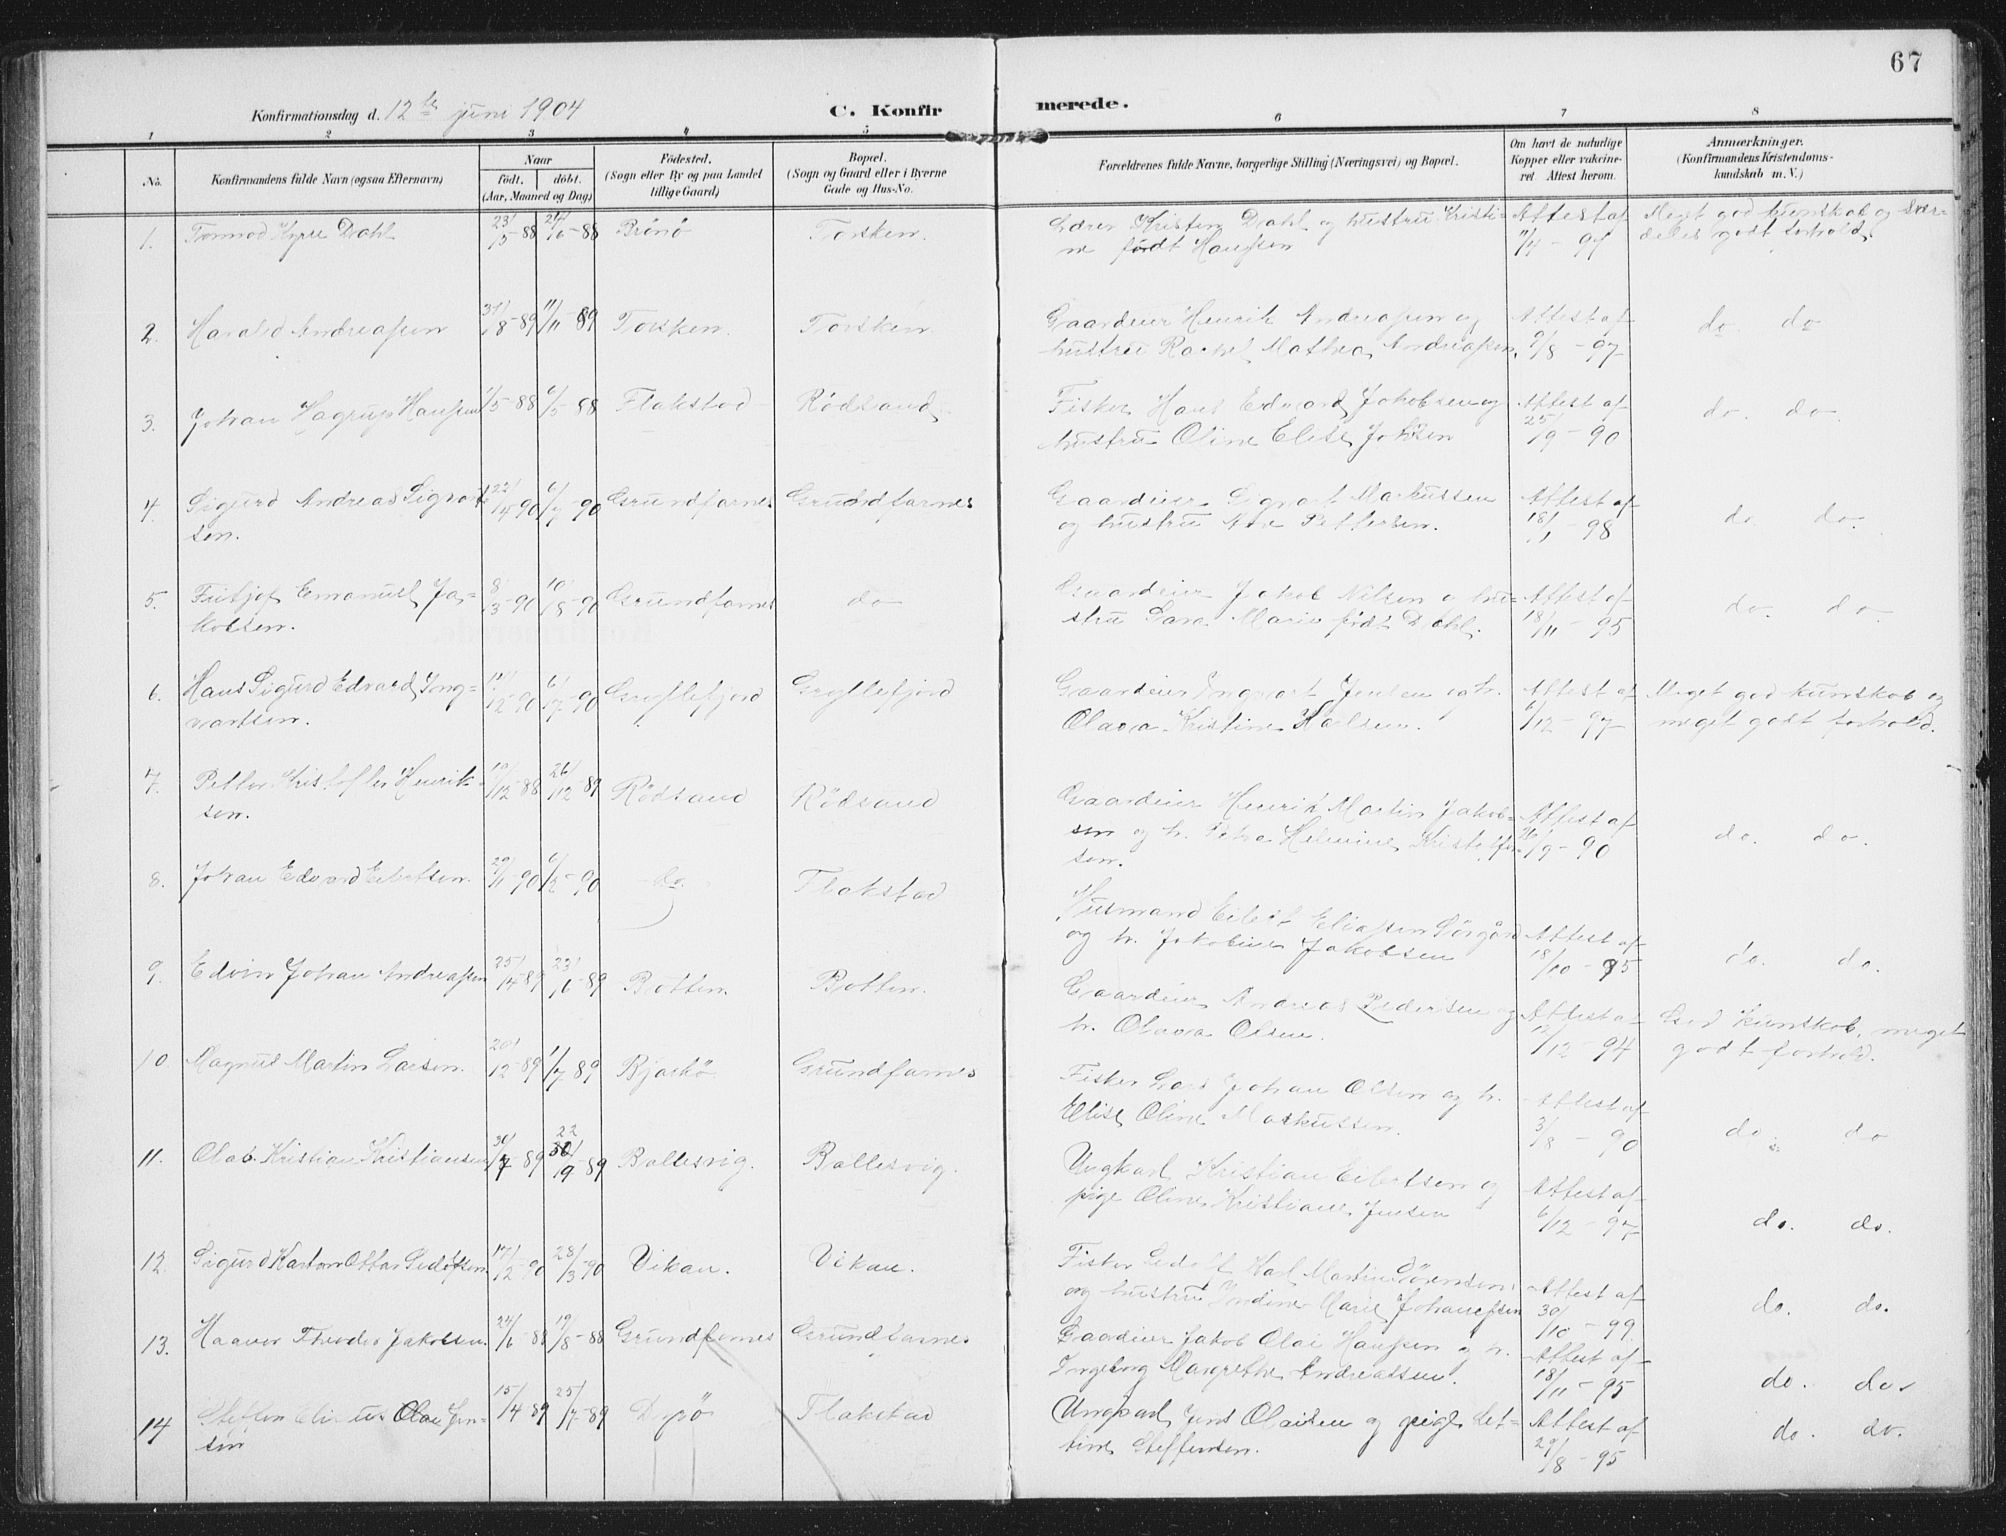 67
Konfirmationsdag d. 12te juni 1904 C. Konfirmerede.
1 2 3 4 5 6 7 8
No. Konfirmandens fulde Navn (ogsaa Efternavn) Naar født, døbt. (Aar, Maaned og Dag) Fødested. (Sogn eller By og paa Landet tillige Gaard) Bopæl. (Sogn og Gaard eller i Byerne Gade og Hus-No. Forældrenes fulde Navne, borgerlige Stilling (Næringsvei) og Bopæl. Om havt de naturlige Kopper eller vakcineret. Attest herom. Anmærkninger. (Konfirmandens Kristendomskundskab m. V.)
1. Tormod Kyrre Dahl 23/5-88 24/6-88 Brönö Torsken. Lærer Kristen Dahl og hustru Kristi- Attest af Meget god kunskab og sær-
ne födt Hanssen 11/4 - 94 deles godt forhold.
2. Harald Andreassen 31/8-89 11/11-89 Torsken. Torsken Gaardeier Henrik Andreassen og Attest af do. do
hustru Rachel Mathea Andreassen. 9/8 - 97
3. Johan Hagrup Hanssen 1/5-88 6/5-88 Flakstad Rödsand Fisker Hans Edvard Jakobsen og Attest af do. do
hustru Oline Elise 25/9 - 90
4. Sigurd Andreas Sigvart- 22/4-90 6/7-90 Grundfarnes Grundfarnes Gaardeier Sigvart Markussen Attest af do do.
sen. og hustru Pettersen. 18/1 - 98
5. Fritjof Emanuel Ja- 8/3-90 10/8-90 Grundfarnes do Gaardeier Jakob Nilsen o hu- Attest af do. do.
kobsen. stru Sara Marie födt Dahl. 18/11 - 95
6. Hans Sigurd Edvard Ing- 12-90 6/7-90 Gryllefjord Gryllefjord Gaardeier Ingvart Jensen og h. Attest af Meget god kunskab og
vartsen. Olava Kristine Karlsen. 6/12 - 97 meget godt forhold.
7. Petter Kristoffer Henrik- 12-88 26/12-89 Rödsand Rödsand Gaardeier Henrik Martin Jakob- Attest af do. do.
sen. sen og h. Petra Helmine Kristoffer- 26/9 - 90
sen.
8. Johan Edvard Eilertsen. 29/11-90 6/2-90 do. Flakstad Husmand Eilert Eliassen Sörgård Attest af do. do.
og h. Jakobine Jakobsen 18/10 - 95
9. Edvin Johan Andreassen 25/4-89 23/6-89 Botten. Botten. Gaardeier Andreas Pedersen og Attest af God kunskab, meget
h. Olava Olsen. 17/12 - 94 godt forhold.
10 Magnus Martin Larsen. 20/12-89 1/7-89 Bjarkö Grundfarnes Fisker Lars Johan Olsen og h. Attest af do. do
Elise Oline Markussen. 3/8 - 90
11. Olaf Kristian Kristiansen 30/7-89 22/9-89 Ballesvig. Ballesvig. Ungkarl Kristian Eilertsen og Attest af do. do.
pige Oline Kristiane Jensen 6/12 - 97
12. Sigurd Karton Ottar Sedolfsen. 17/2-90 23/3-90 Vikan. Vikan. Fisker Sedolf Karl Martin Sörensen Attest af do. do.
og hustru Marie Johanessen 30/10 - 99.
13. Haavor Theodor Jakobsen. 24/6-88 19/8-88 Grundfarnes Grundfarnes Gaardeier Jakob Olai Hanssen og h. Attest af do. do.
Ingeborg Margrethe Andreassen. 18/11 - 95
14 Steffen Olai Jen- 15/4-89 25/7-89 Dyrö Flakstad Ungkarl Jens Olaisen og pige Let- Attest af do. do.
sen tine Steffensen. 29/8 - 95